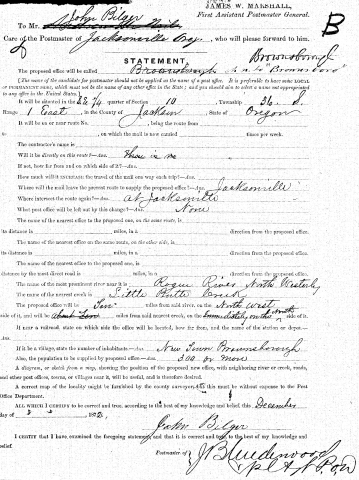 JAMES W. MARSHALL,
First Assistant Postmaster General.
B
To Mr. John Bilger
Care of the Postmaster of Jacksonville Ogn, who will please forward to him.
STATEMENT. Brownsborough
The proposed office will be called Brownsborough "Brownsboro"
(The name of the candidate for postmaster should not be applied as the name of a post office. It is preferable to have some LOCAL
or PERMANENT name, which must not be the name of any other office in the State; and you should also to select a name not appropriated
to any office in the United States.)
It will be situated in the quarter of Section 10, Township 36 S.
Range 1 East, in the County of Jackson, State of Oregon
It will be on or near route No. , being the route from
, on which the mail is now carried times per week.
The contractor's name is
Will it be directly on this route?—Ans. there is no
If not, how far from and on which side of it?—Ans.
How much will it increase the travel of the mail one way each trip?—Ans.
Where will the mail leave the present route to supply the proposed office?—Ans. Jacksonville
Where intersect the route again?—Ans. at Jacksonville
What post office will be left out by this change?—Ans. None
The name of the nearest office to the proposed one, on the same route, is
its distance is miles, in a direction from the proposed office.
The name of the nearest office on the same route, on the other side, is
its distance is miles, in a direction from the proposed office.
The name of the nearest office to the proposed one, not on this route, is
distance by the most direct road is miles, in a direction from the proposed office.
The name of the most prominent river near it is Rogue River North Westerly
The name of the nearest creek is Little Butte Creek
The proposed office will be miles from said river, on the North west
side of it, and will be miles from said nearest creek, on the immediately on the North
side of it.
If near a railroad, state on which side the office will be located, how far from, and the name of the station or depot.—
Ans.
If it be a village, state the number of inhabitants—Ans. New Town Brownsborough
Also, the population to be supplied by proposed office—Ans. 300 or more
A diagram, or sketch from a map, showing the position of the proposed new office, with neighboring river or creek, roads,
and other post offices, towns, or villages near it, will be useful, and is therefore desired.
A correct map of the locality might be furnished by the county surveyor, but this must be without expense to the Post
Office Department.
ALL which I CERTIFY to be correct and true, according to the best of my knowledge and belief this December
day of 8, 1872.
John Bilger
I CERTIFY that I have examined the foregoing statement, and that it is correct and true, to the best of my knowledge and
belief.
Postmaster of